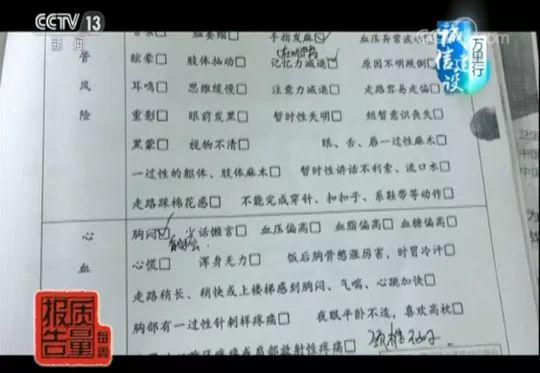 CCTV 13
新闻
诚信建设
万里行
手指发麻☑ 血压异常波动
管 眩晕□ 肢体抽动□ 记忆力减退☑ 原因不明跌倒□
风 耳鸣□ 思维缓慢□ 注意力减退□ 走路容易走偏□
险 重影□ 眼前发黑□ 暂时性失明□ 短暂意识丧失□
黑蒙□ 视物不清□ 眼、舌、唇一过性麻木□
一过性的躯体、肢体麻木□ 暂时性讲话不利索、流口水□
走路踩棉花感□ 不能完成穿针、扣扣子、系鞋带等动作□
心 胸闷☑ 少话懒言□ 血压偏高□ 血脂偏高□ 血糖偏高□
血 心慌□ 浑身无力□ 饭后胸骨憋涨厉害，时冒冷汗□
走路稍长、稍快或上楼梯感到胸闷、气喘、心跳加快□
胸部有一过性针刺样疼痛□ 夜眠平卧不适，喜欢高枕□
肩部放射性疼痛□
每周
质量
报告